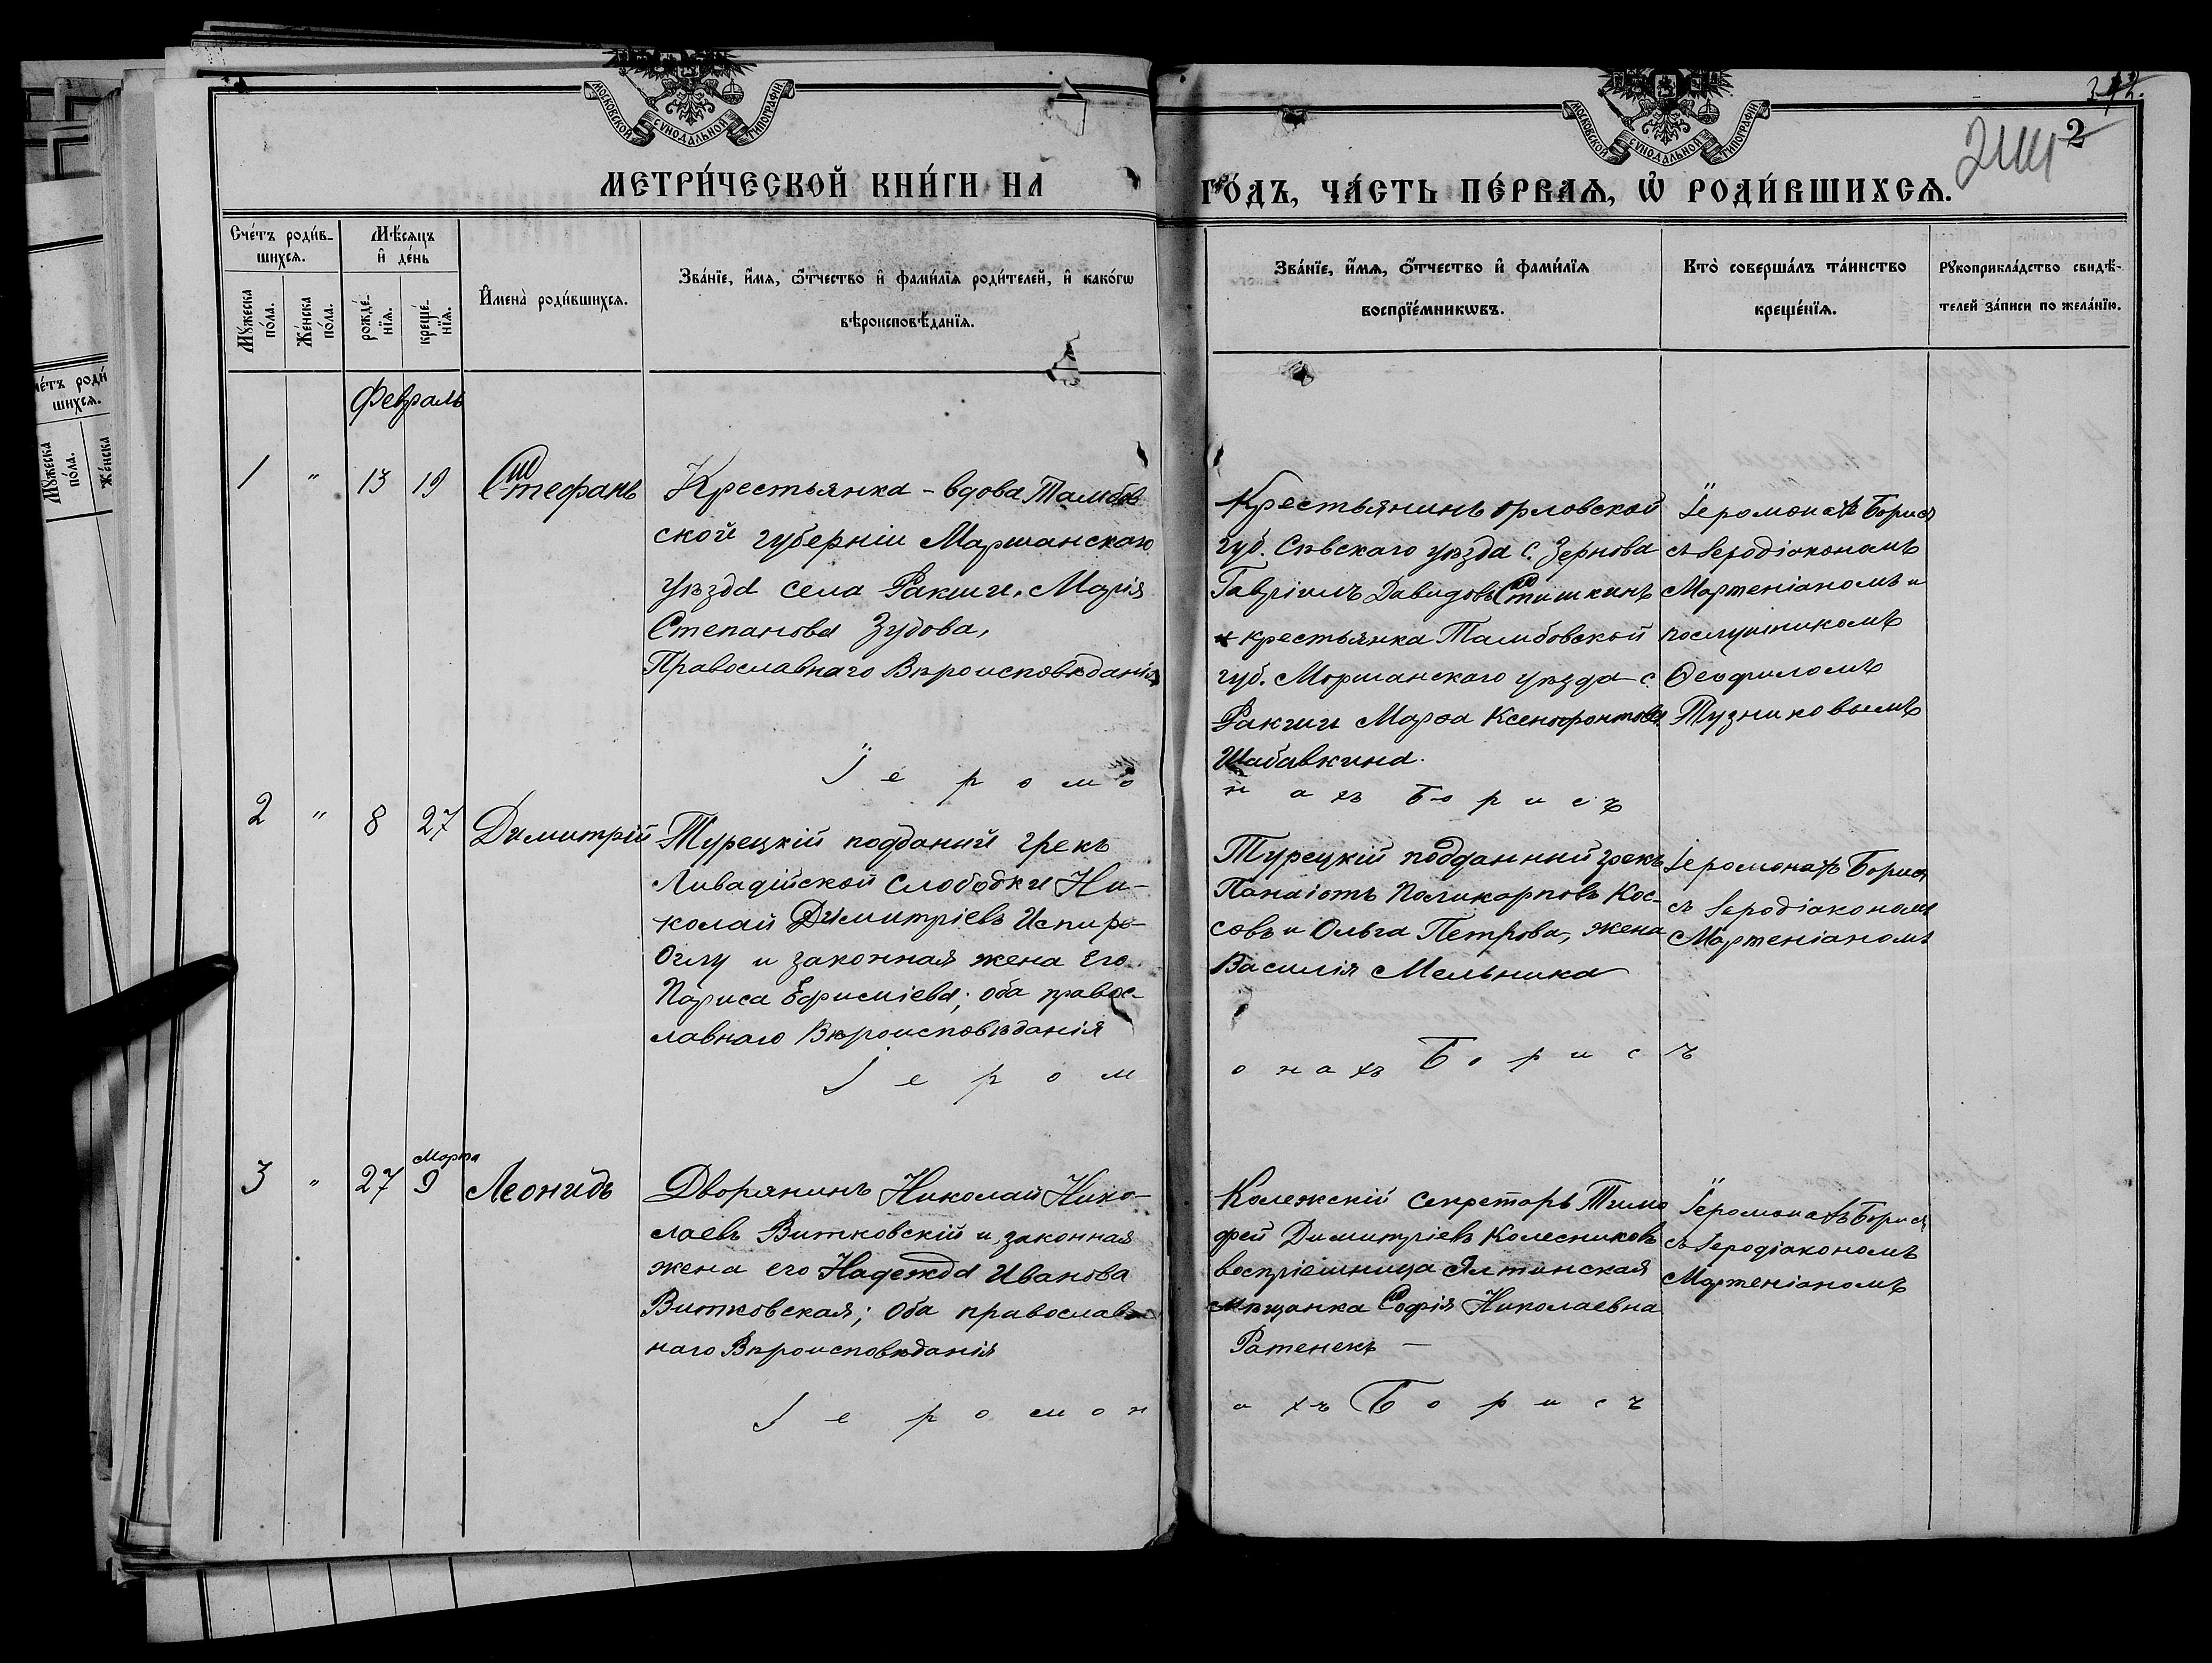 МОСКОВСКОЙ СѴНОДАЛЬНОЙ ТИПОГРАФІИ
МОСКОВСКОЙ СѴНОДАЛЬНОЙ ТИПОГРАФІИ
2
МЕТРИ́ЧЕСКОЙ КНИ́ГИ НА
ГО́ДЪ, ЧА́СТЬ ПЕ́РВАѦ, Ѡ҆ РОДИ́ВШИХСѦ.
Сче́тъ роди́в-
шихсѧ.
Мꙋ́жеска по́ла.
Же́нска по́ла.
Мѣ́сѧцъ
и҆ де́нь
рожде́-
нїѧ.
креще́-
нїѧ.
И҆мена̀ роди́вшихсѧ.
Зва́нїе, и҆́мѧ, ѻ҆́тчество и҆ фами́лїѧ роди́телей, и҆ како́гѡ
вѣроисповѣ́данїѧ.
Зва́нїе, и҆́мѧ, ѻ҆́тчество и҆ фами́лїѧ
воспрїе́мникѡвъ.
Кто̀ соверша́лъ та́инство
креще́нїѧ.
Рꙋкоприкла́дство свидѣ́-
телей за́писи по жела́нїю.
Февраль
1 " 13 19 Стефанъ
Крестьянка - вдова Тамбов
ской губерніи Маршанскаго
уѣзда села Ракши, Марія
Степанова Зубова,
Православнаго Вѣроисповѣданія
Крестьянинъ Орловской
губ. Сѣвскаго уѣзда с. Зернова
Гавріилъ Давидовъ Стишкинъ
и крестьянка Тамбовской
губ. Моршанскаго уѣзда с.
Ракши Марѳа Ксенофонтова
Шабавкина.
Іеромонахъ Борисъ
съ Іеродіакономъ
Мартеніаномъ и
послушникомъ
Ѳеофиломъ
Тузниковымъ
Іеромонахъ Борисъ
2 " 8 27 Димитрій
Турецкій подданий грекъ
Ливадійской Слободки Ни-
колай Димитріевъ Испиро-
Оглу и законная жена его
Париса Ефиміева; оба правос-
лавнаго Вѣроисповѣданія
Турецкій подданный грекъ
Панаіотъ Поликарповъ Кос-
совъ и Ольга Петрова, жена
Василія Мельника
Іеромонахъ Борисъ
съ Іеродіакономъ
Мартеніаномъ
Іеромонахъ Борисъ
Марта
3 " 27 9 Леонидъ
Дворянинъ Николай Нико-
лаевъ Витковскій и законная
жена его Надежда Иванова
Витковская; Оба православ
наго Вѣроисповѣданія
Колежскій Секретарь Тимо
фей Димитріевъ Колесниковъ
воспріемница Ялтинская
мѣщанка Софія Николаевна
Ратенекъ —
Іеромонахъ Борисъ
съ Іеродіакономъ
Мартеніаномъ
Іеромонахъ Борисъ